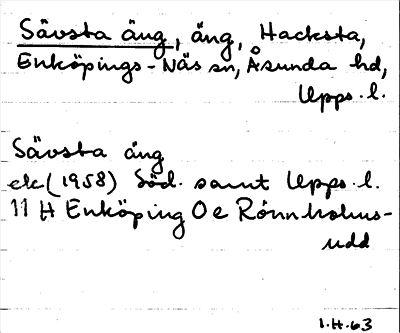 Sävsta äng, äng, Hacksta,
Enköpings-Näs sn, Åsunda hd,
Upps. l.
Sävsta äng
ek (1958) Söd. samt Upps. l.
11 H Enköping 0 e Rönnholms-
udd
I.H.63